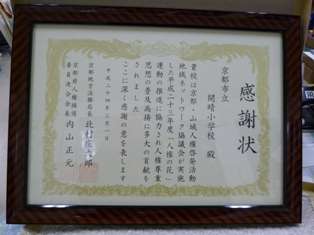 感謝状
京都市立
開晴小学校 殿
貴校は京都・山城人権啓発活動
地域ネットワーク協議会が実施
した平成二十三年度「人権の花」
運動の推進に協力され人権尊重
思想の普及高揚に多大の貢献を
されました
ここに深く感謝の意を表します
平成二十四年三月一日
京都地方法務局長 北村
京都府人権擁護
委員連合会長 内山正元